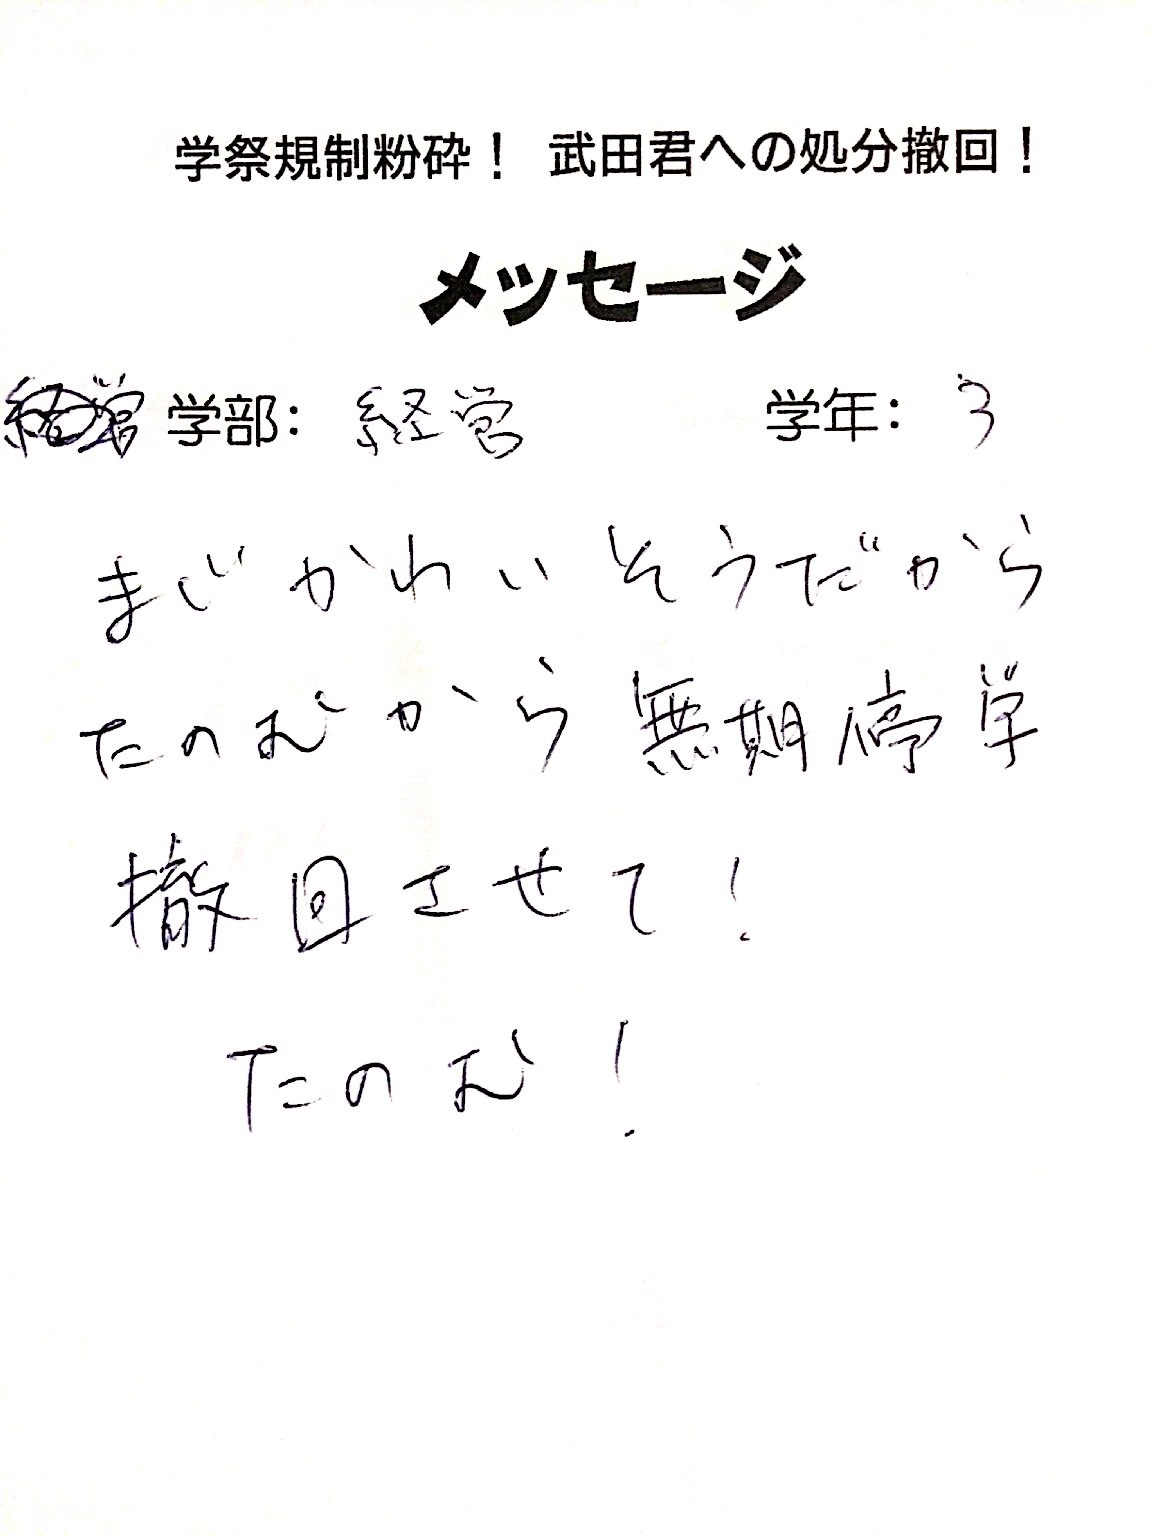 学祭規制粉砕！ 武田君への処分撤回！
メッセージ
学部： 経営 学年： 3
まじかわいそうだから
たのむから無期停学
撤回させて！
たのむ！